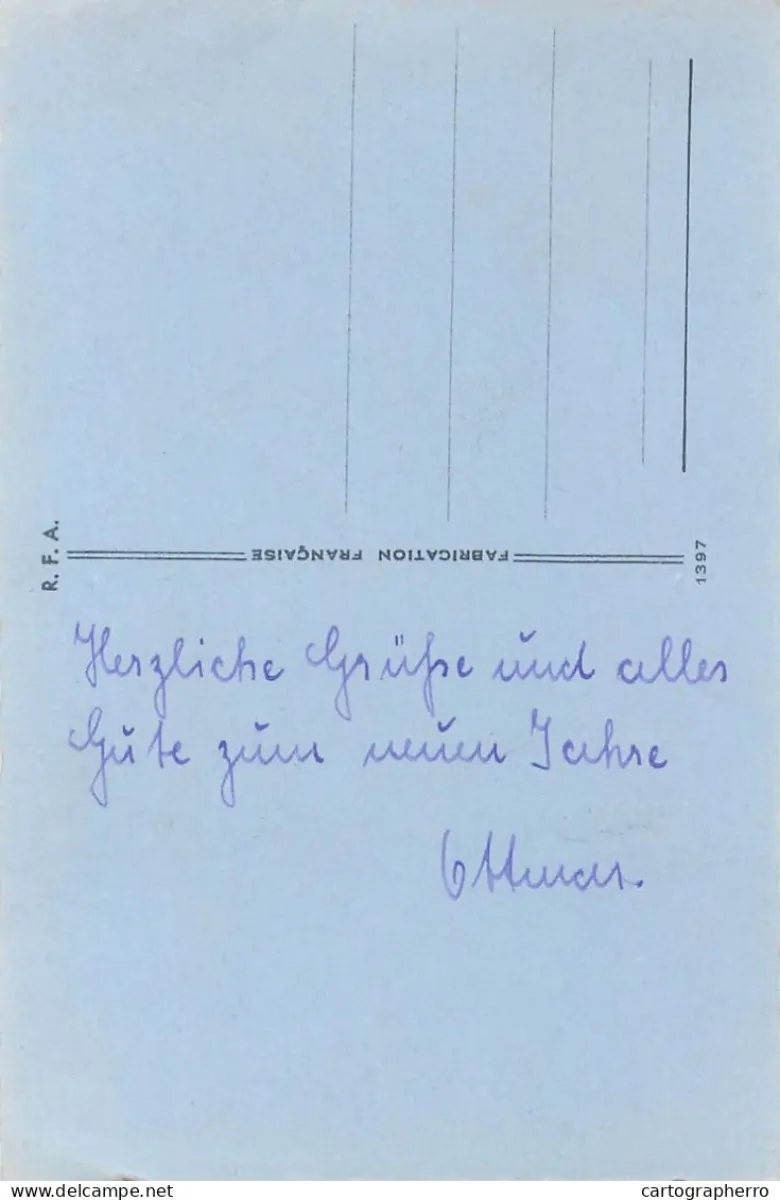 R. F. A.
FABRICATION FRANÇAISE
1397
Herzliche Grüße und alles
Gute zum neuen Jahre
Ottmar.
delcampe.net
cartographerro